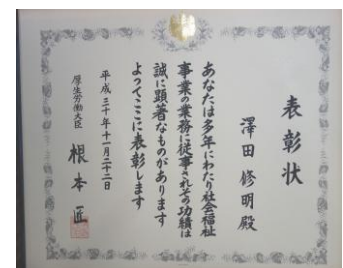 表彰状
澤田修明殿
あなたは多年にわたり社会福祉
事業の業務に従事されその功績は
誠に顕著なものがあります
よってここに表彰します
平成三十年十一月二十二日
厚生労働大臣 根本匠